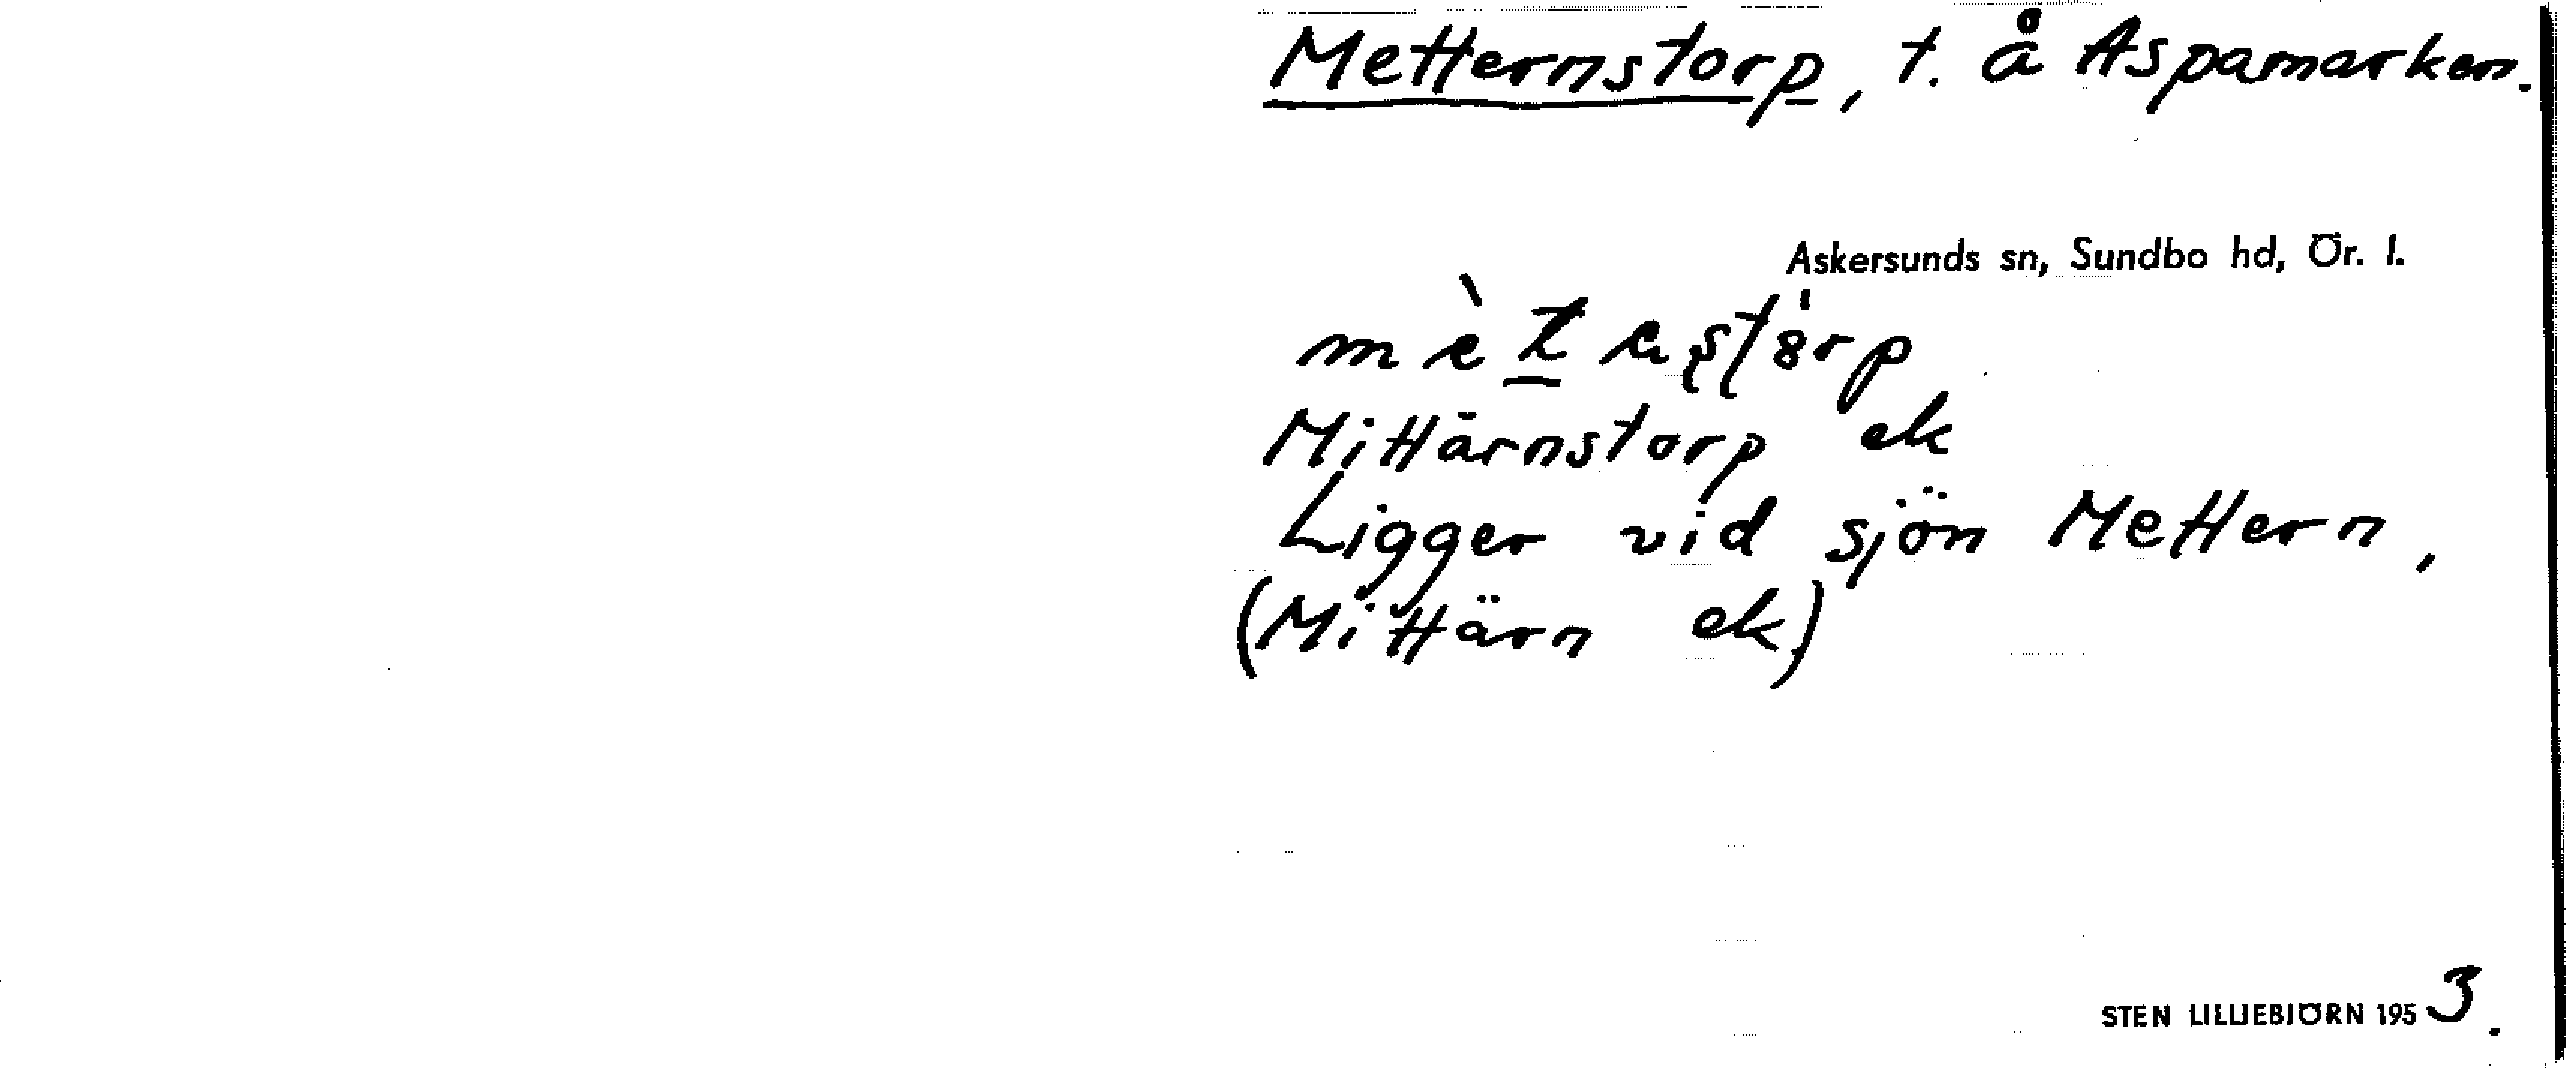 Metternstorp, t. å Aspamarken.
Askersunds sn, Sundbo hd, Ör. l.
Mittärnstorp ek
Ligger vid sjön Mettern,
(Mittärn ek)
STEN LILLIEBJÖRN 1953.